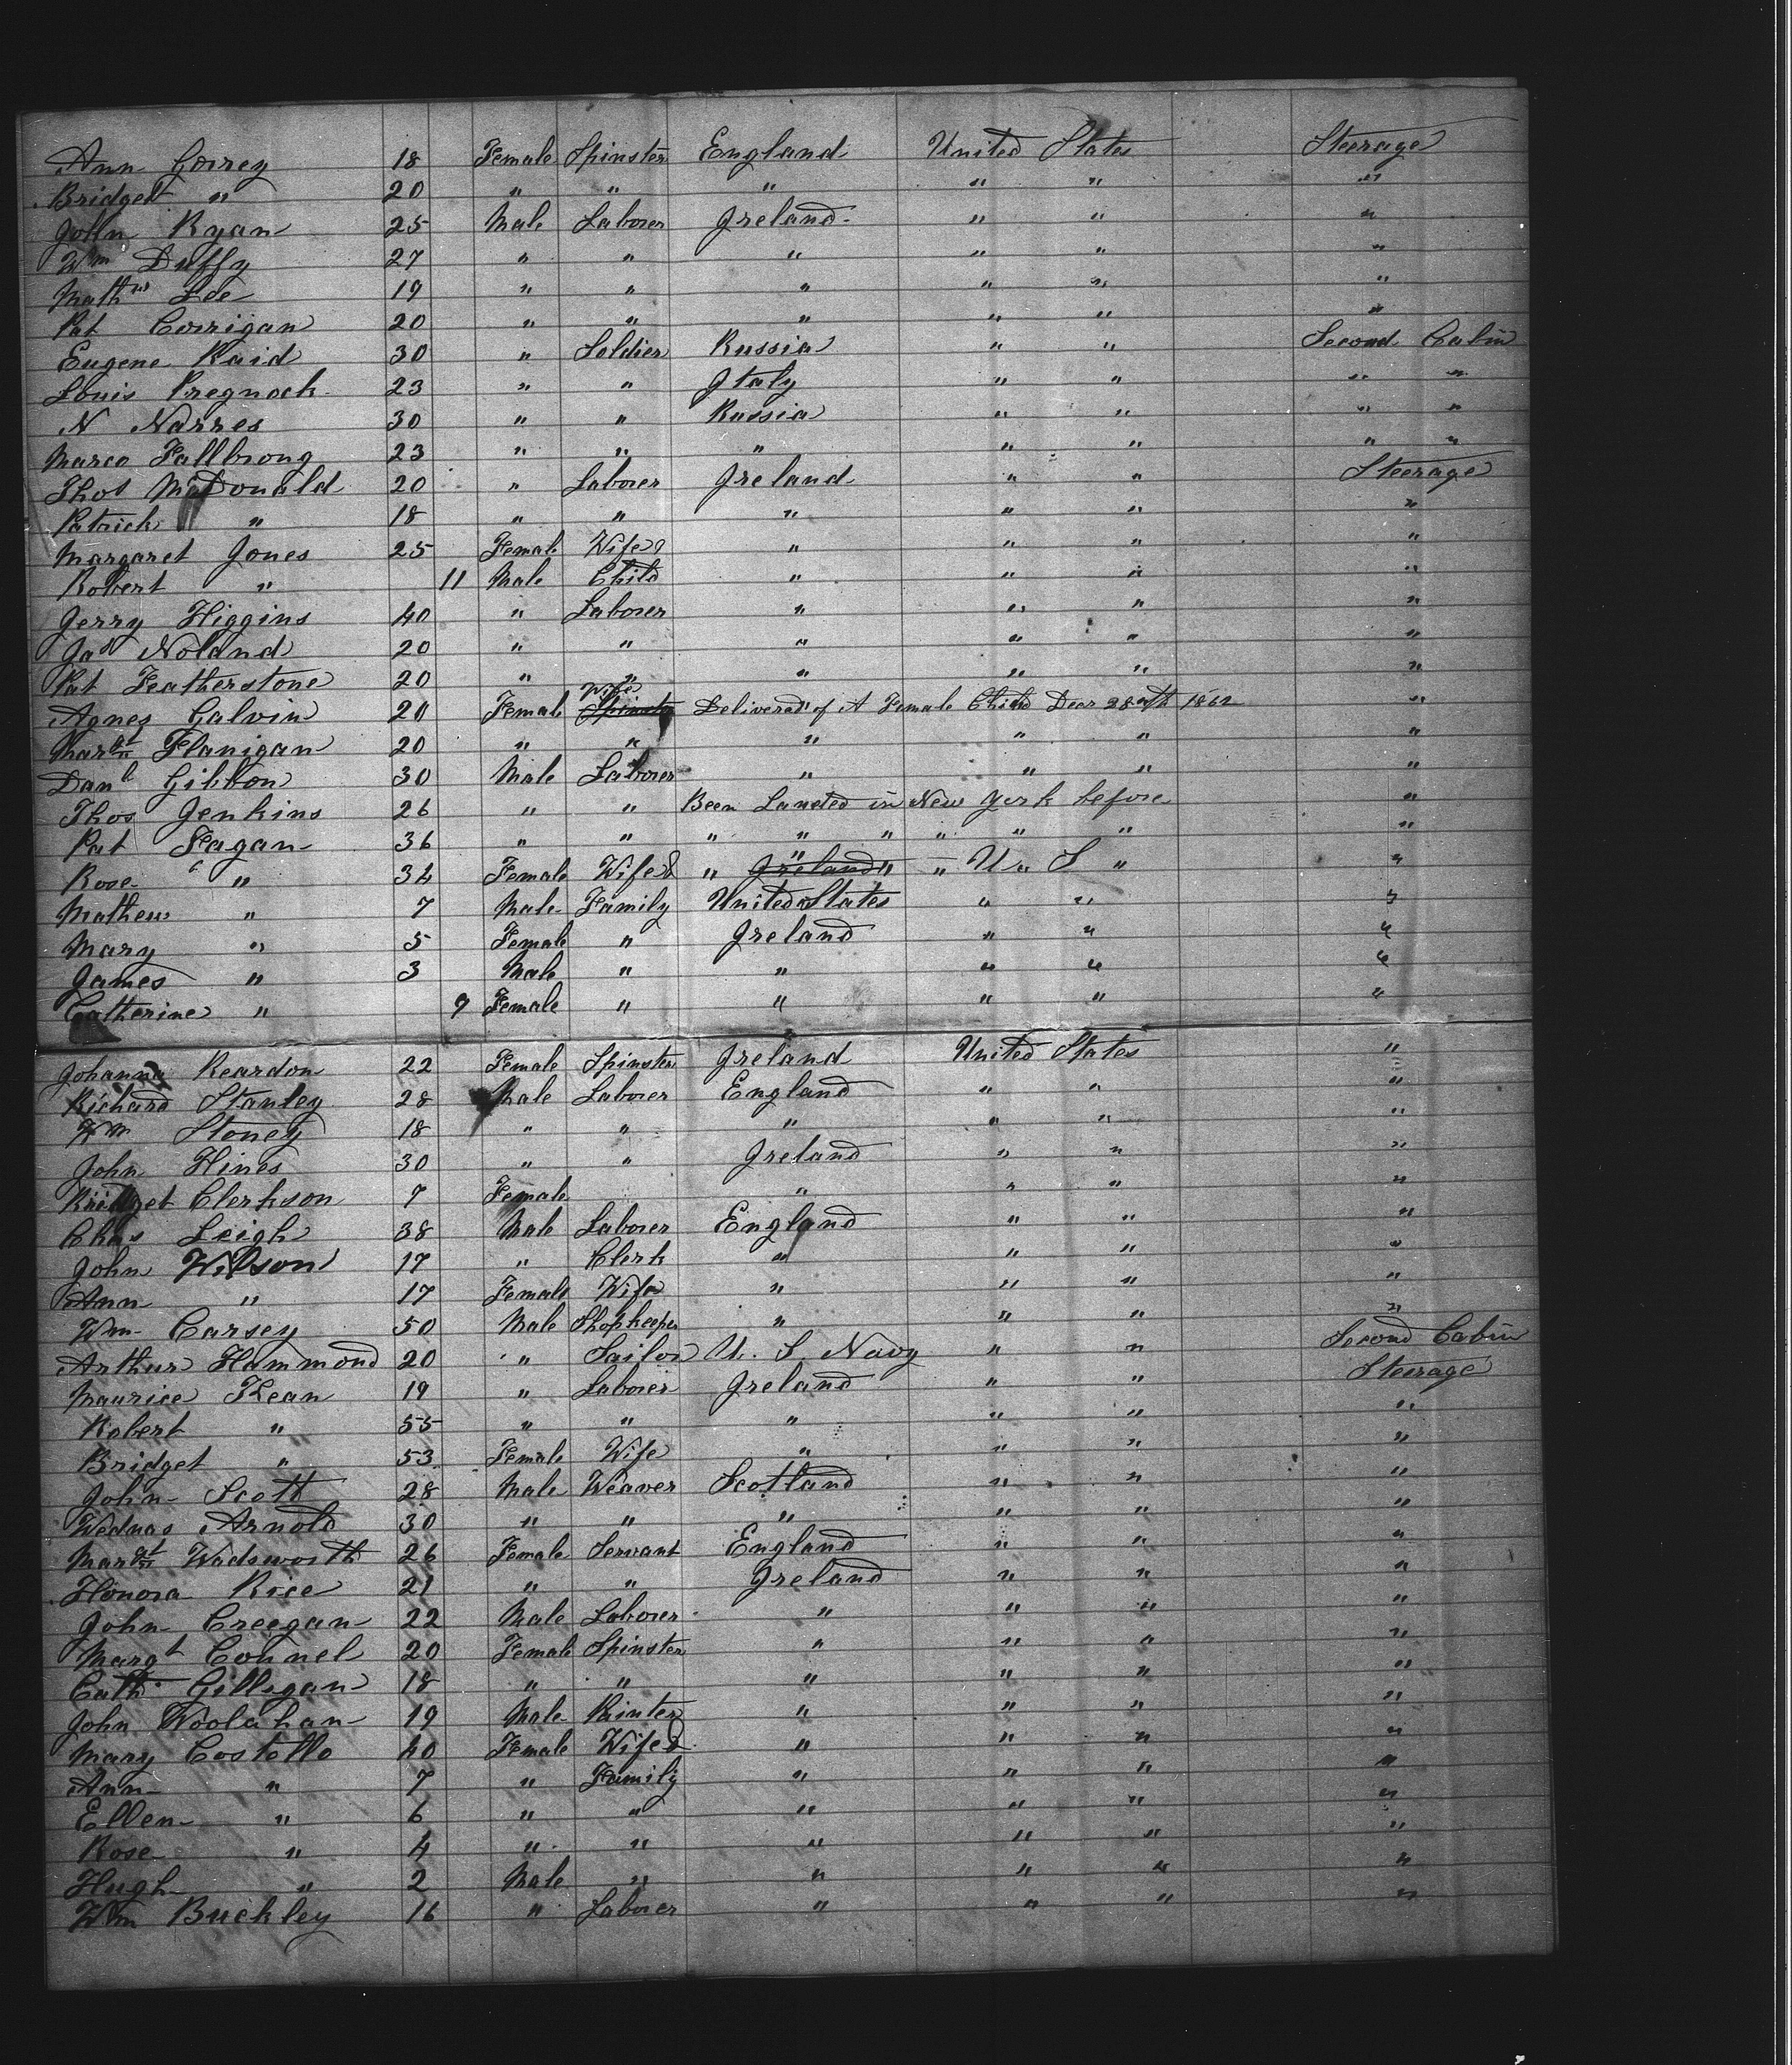 Ann Gorrey 18 Female Spinster England United States Steerage
Bridget " 20 " " " " " "
John Ryan 25 Male Laborer Ireland " " "
Wm Duffy 27 " " " " " "
Mathw Lee 19 " " " " " "
Pat Corrigan 20 " " " " " "
Eugene Raid 30 " Soldier Russia " " Second Cabin
Louis Pregnoch 23 " " Italy " " " "
N Narres 30 " " Russia " " " "
Marco Fallbrong 23 " " " " " " "
Thos McDonald 20 " Laborer Ireland " " Steerage
Patrick " 18 " " " " " "
Margaret Jones 25 Female Wife & " " " "
Robert " 11 Male Child " " " "
Jerry Higgins 40 " Laborer " " " "
Jas Noland 20 " " " " " "
Pat Featherstone 20 " " " " " "
Agnes Galvin 20 Female Spinster Wife Delivered of A Female Child Decr 28th 1862 "
Margt Flanigan 20 " " " " " "
Danl Gibbon 30 Male Laborer " " " "
Thos Jenkins 26 " " Been Landed in New York before "
Pat Fagan 36 " " " " " " " " "
Rose " 34 Female Wife & " Ireland " " " U " S " "
Mathew " 7 Male Family United States " " "
Mary " 5 Female " Ireland " " "
James " 3 Male " " " " "
Catherine " 9 Female " " " " "
Johanna Reardon 22 Female Spinster Ireland United States "
Richard Stanley 28 Male Laborer England " " "
Wm Stoney 18 " " " " " "
John Hines 30 " " Ireland " " "
Bridget Clerkson 7 Female " " " "
Chas Leigh 38 Male Laborer England " " "
John Wilson 17 " Clerk " " " "
Ann " 17 Female Wife " " " "
Wm Carsey 50 Male Shopkeeper " " " "
Arthur Hammond 20 " Sailor U. S. Navy " " Second Cabin
Maurice Kean 19 " Laborer Ireland " " Steerage
Robert " 55 " " " " " "
Bridget " 53 Female Wife " " " "
John Scott 28 Male Weaver Scotland " " "
Arnold 30 " " " " " "
Margt Wadsworth 26 Female Servant England " " "
Honora Rice 21 " " Ireland " " "
John Creegan 22 Male Laborer " " " "
Margt Connel 20 Female Spinster " " " "
Cath Gilligan 18 " " " " " "
John Woolahan 19 Male Painter " " " "
Mary Costello 40 Female Wife & " " " "
Ann " 7 " Family " " " "
Ellen " 6 " " " " " "
Rose " 4 " " " " " "
Hugh " 2 Male " " " " "
Wm Buckley 16 " Laborer " " " "